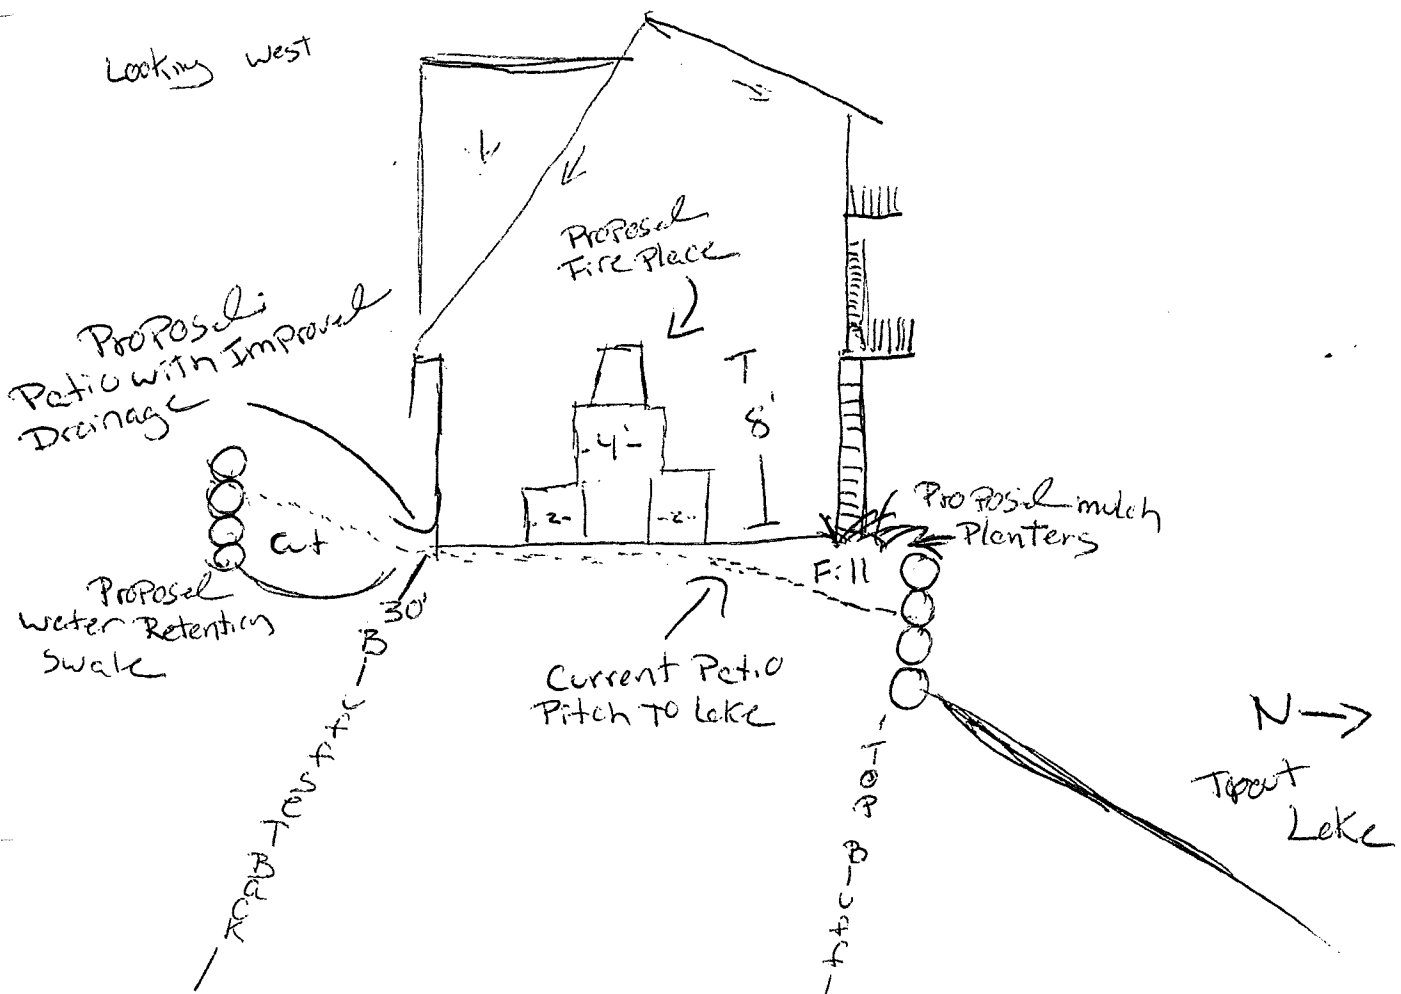 Looking west
Proposed
Fire Place
Proposed
Patio with Improved
Drainage
T
8'
-4'-
-2-
-2-
Cut
Proposed mulch
Planters
Fill
Proposed
Water Retention
Swale
30'
Bluff SetBack
Current Patio
Pitch To Lake
Top Bluff
N
Lake